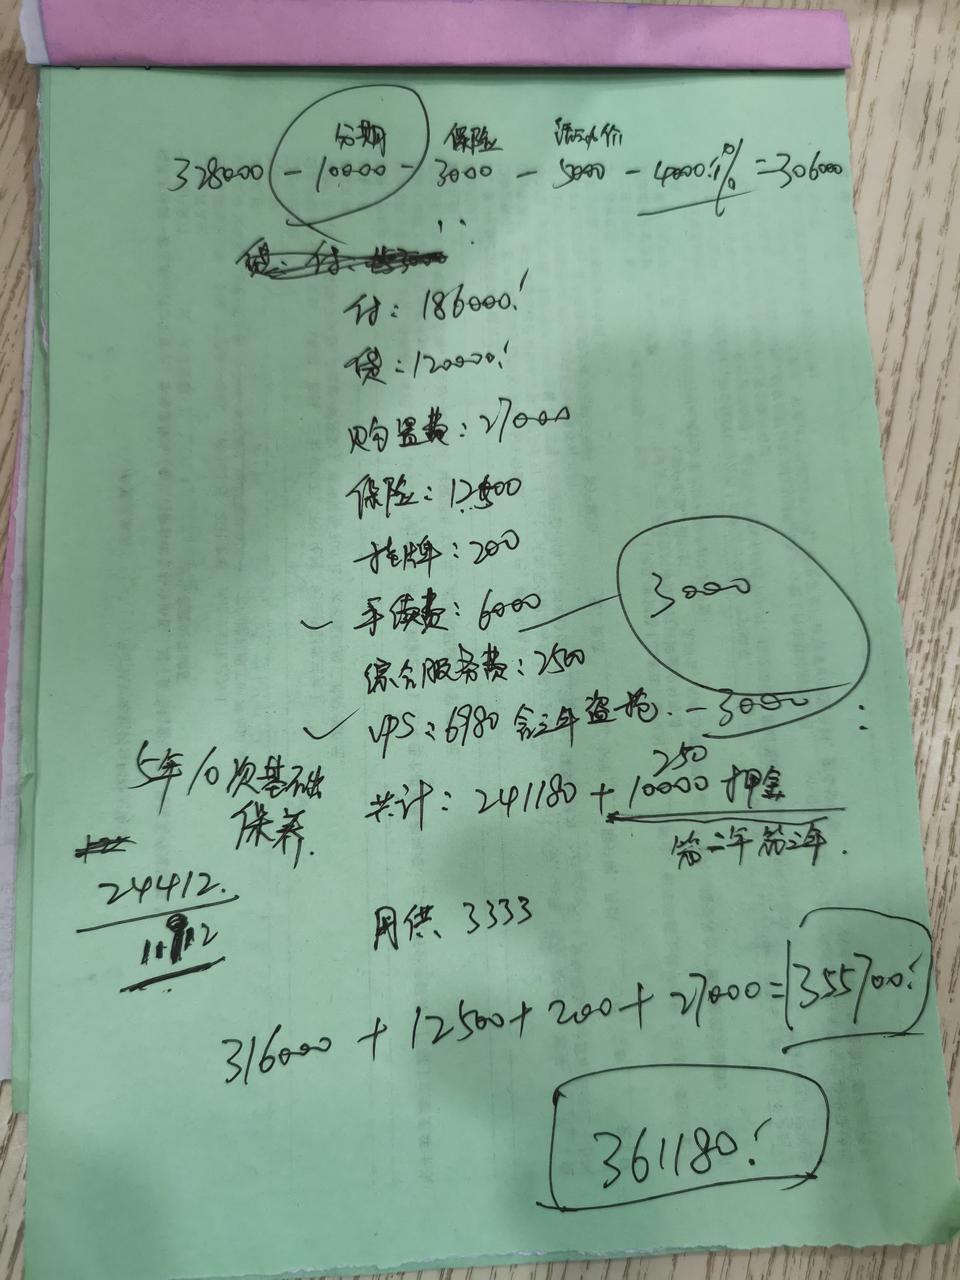 分期 保险 活动价
328000 - 10000 - 3000 - 5000 - 4000 = 306000
付：186000！
贷：120000！
购置费：27000
保险：12500
挂牌：200
手续费：6000
3000
综合服务费：2500
VPS：6980 含三年盗抢 - 3000
250
共计：241180 + 10000 押金
第二年 第三年.
5年10次基础
保养.
24412.
月供、3333
316000 + 12500 + 200 + 27000 = 355700！
361180！